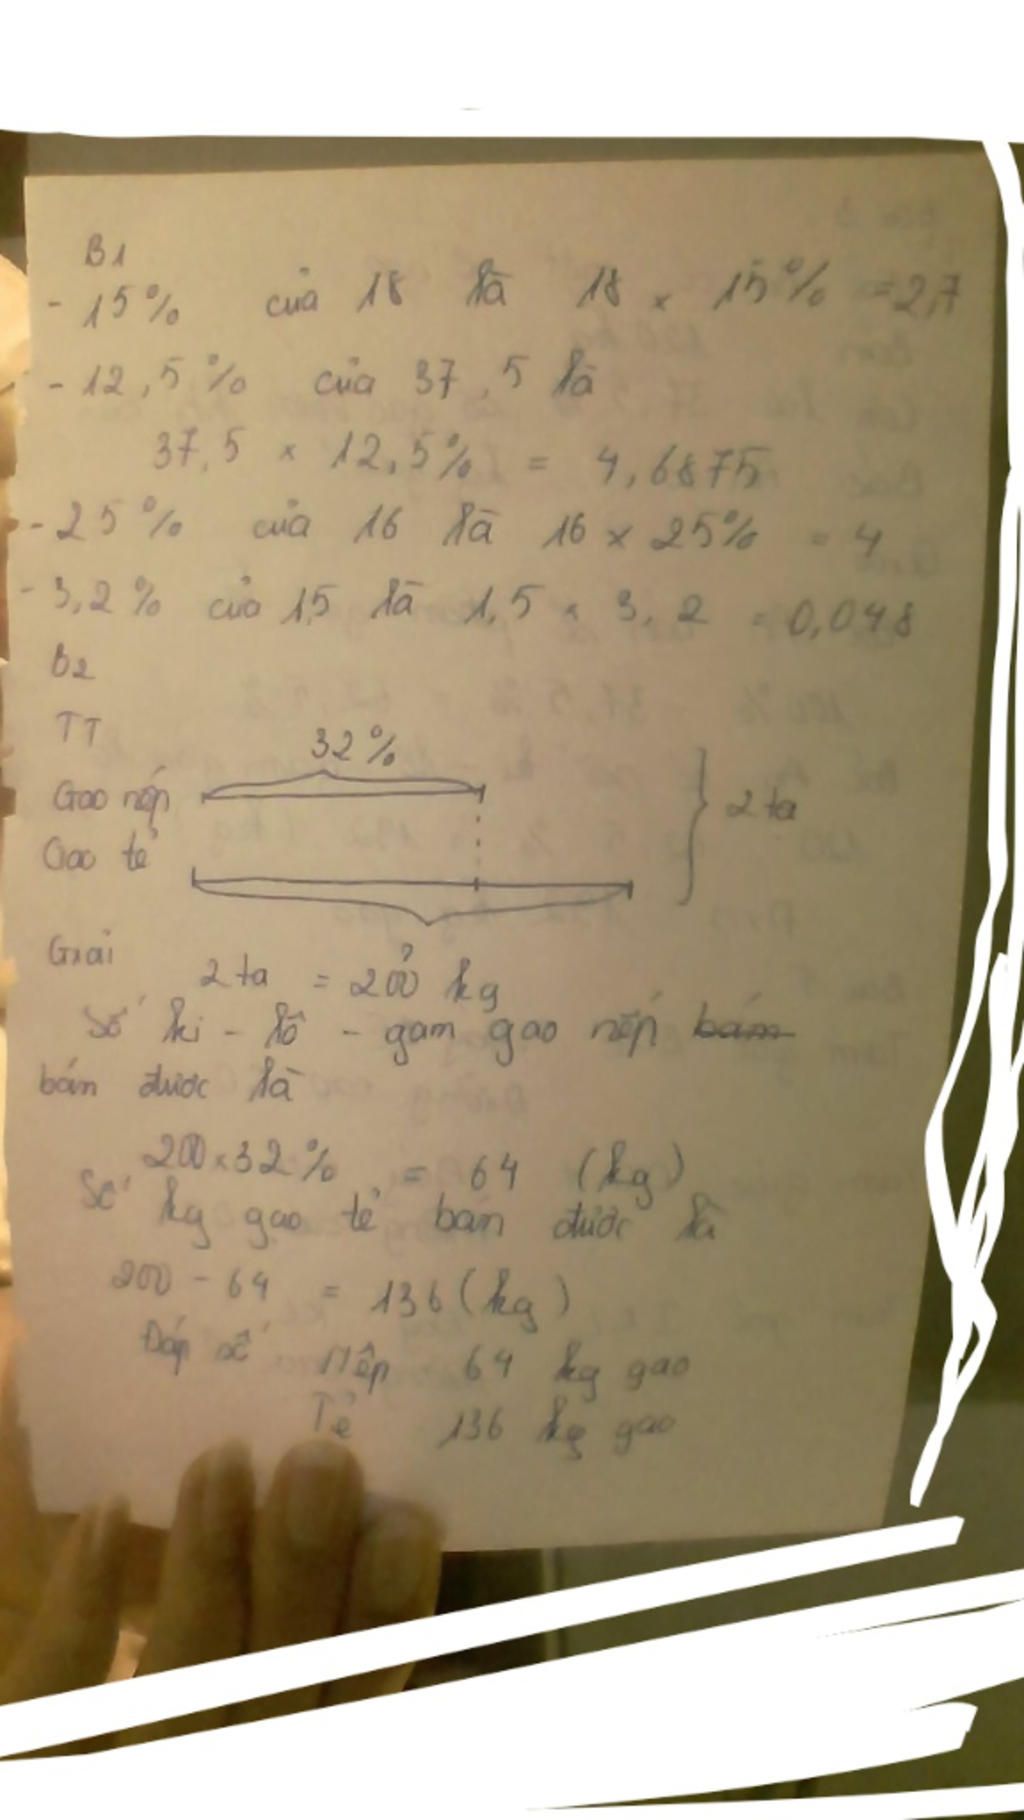 B1
- 15% của 18 là 18 x 15% = 2,7
- 12,5% của 37,5 là
37,5 x 12,5% = 4,6875
- 25% của 16 là 16 x 25% = 4
- 3,2% của 1,5 là 1,5 x 3,2 = 0,048
B2
TT
32%
Gạo nếp
2 tạ
Gạo tẻ
Giải
2 tạ = 200 kg
Số ki - lô - gam gạo nếp bám
bán được là
200 x 32% = 64 (kg)
Số kg gạo tẻ bán được là
200 - 64 = 136 (kg)
Đáp số Nếp 64 kg gạo
Tẻ 136 kg gạo